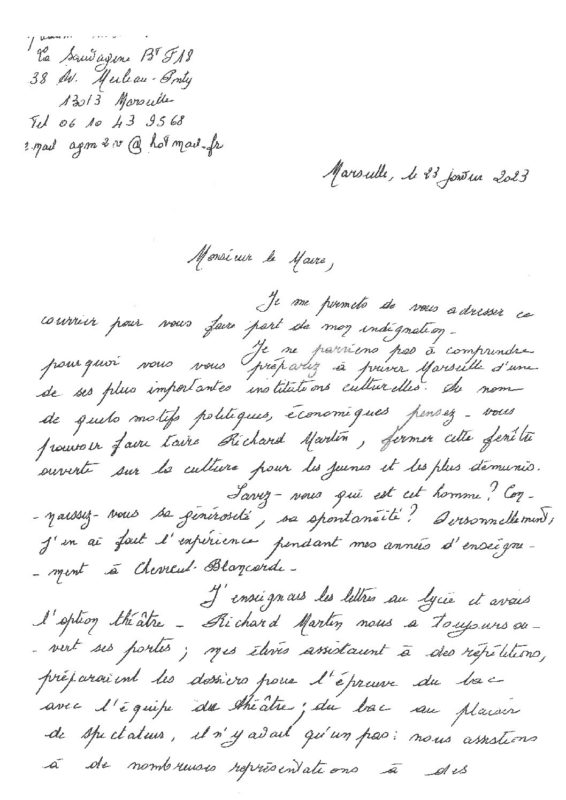 La Sauvagine Bt F18
38 Av. Merleau-Ponty
13013 Marseille
Tel 06 10 43 95 68
e.mail agm2v@hotmail.fr
Marseille, le 23 janvier 2023
Monsieur le Maire,
Je me permets de vous adresser ce
courrier pour vous faire part de mon indignation.
Je ne parviens pas à comprendre
pourquoi vous vous préparez à priver Marseille d'une
de ses plus importantes institutions culturelles. Au nom
de quels motifs politiques, économiques pensez-vous
pouvoir faire taire Richard Martin, fermer cette fenêtre
ouverte sur la culture pour les jeunes et les plus démunis.
Savez-vous qui est cet homme? Con-
-naissez-vous sa générosité, sa spontanéité? Personnellement,
j'en ai fait l'expérience pendant mes années d'enseigne-
-ment à Chevreul-Blancarde-
J'enseignais les lettres au lycée et avais
l'option théâtre - Richard Martin nous a toujours ou-
-vert ses portes; mes élèves assistaient à des répétitions,
préparaient les dossiers pour l'épreuve du bac
avec l'équipe du théâtre; du bac au plaisir
de spectateurs, il n'y avait qu'un pas: nous assistions
à de nombreuses représentations à des